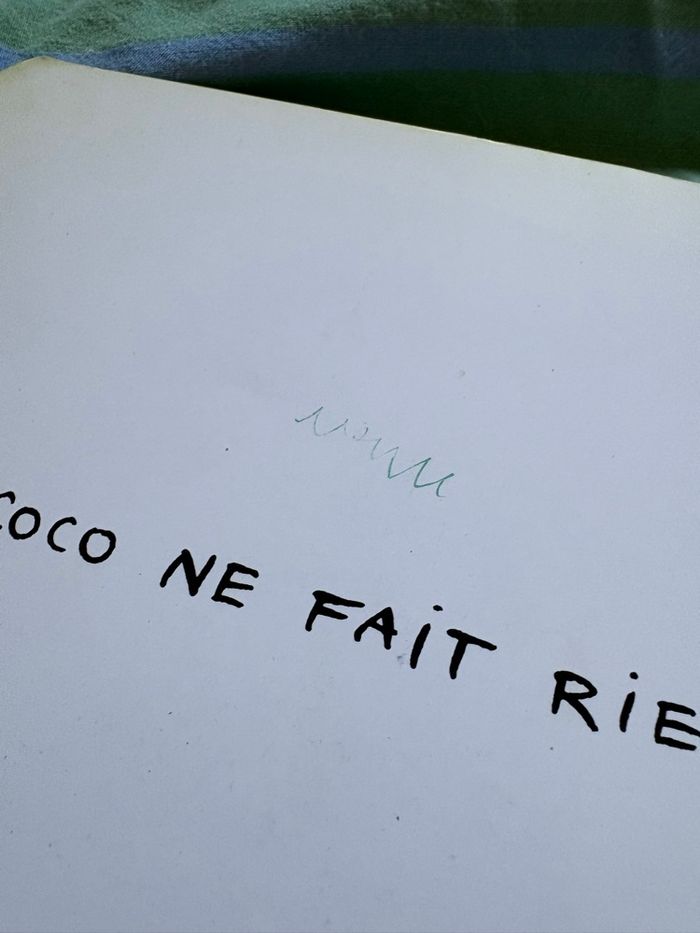 COCO NE FAIT RIE